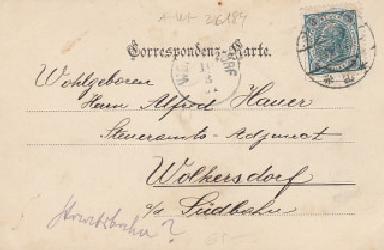 A-W-I 36184
Correspondenz-Karte.
Wohlgeboren
Herrn Alfred Hauer
Steueramts-Adjunct
Wolkersdorf
a/d Südbahn
Staatsbahn?